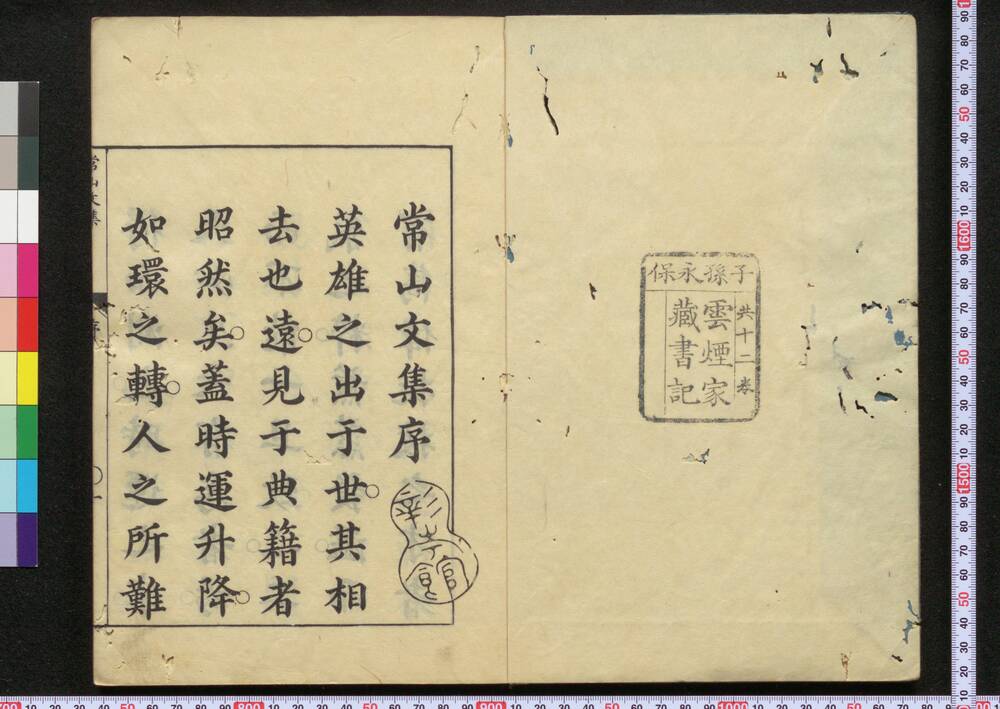 子孫永保
共十二卷
雲煙家
藏書記
常山文集序
彰考館
英雄之出于世其相
去也遠見于典籍者
昭然矣蓋時運升降
如環之轉人之所難
常山文集